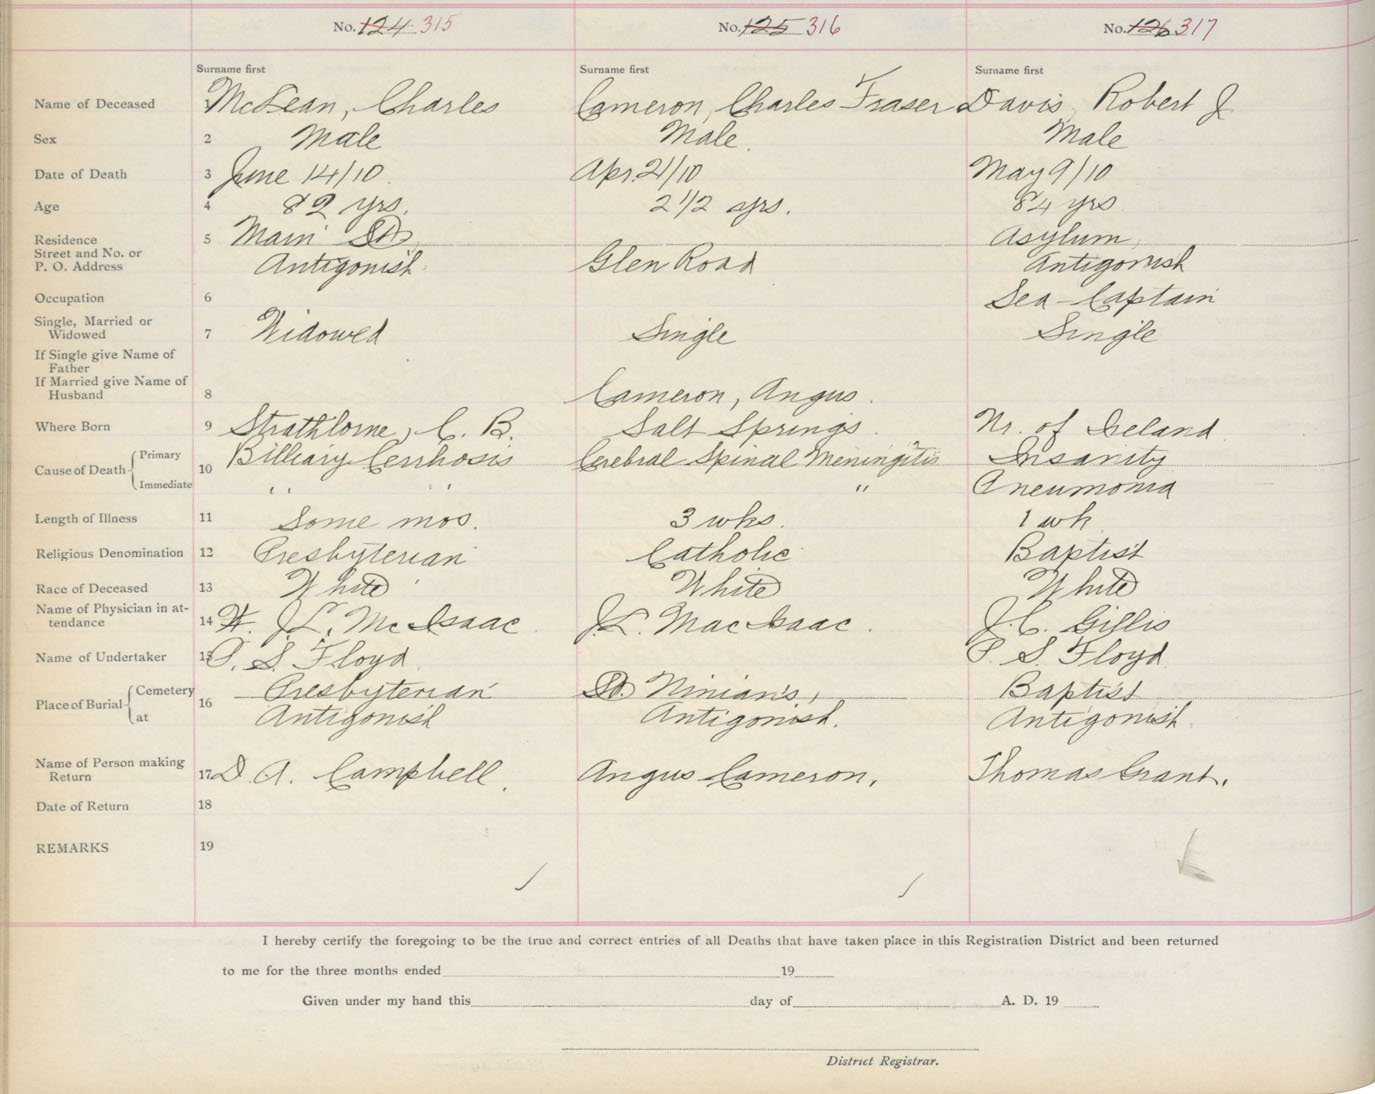 No. 124 315 No. 125 316 No. 126 317
Surname first Surname first Surname first
Name of Deceased 1 McLean, Charles Cameron, Charles Fraser Davis, Robert J
Sex 2 Male Male. Male
Date of Death 3 June 14/10. Apr. 21/10 May 9/10
Age 4 82 yrs. 2 1/2 yrs. 84 yrs
Residence 5 Main St, Asylum,
Street and No. or
P. O. Address Antigonish Glen Road Antigonish
Occupation 6 Sea-Captain
Single, Married or
Widowed 7 Widowed Single Single
If Single give Name of
Father
If Married give Name of
Husband 8 Cameron, Angus.
Where Born 9 Strathlorne, C. B. Salt Springs. Nr. of Ireland
Cause of Death Primary 10 Billiary Cerrhosis Cerebral Spinal Meningitis Insanity
Immediate " " " Pneumonia
Length of Illness 11 Some mos. 3 wks. 1 wk
Religious Denomination 12 Presbyterian Catholic Baptist
Race of Deceased 13 White White White
Name of Physician in at-
tendance 14 W. J. L. McIsaac J. L. MacIsaac. J. C. Gillis
Name of Undertaker 15 P. S. Floyd P. S. Floyd
Place of Burial Cemetery 16 Presbyterian St. Ninian's, Baptist
at Antigonish Antigonish. Antigonish
Name of Person making
Return 17 D. A. Campbell, Angus Cameron, Thomas Grant.
Date of Return 18
REMARKS 19
I hereby certify the foregoing to be the true and correct entries of all Deaths that have taken place in this Registration District and been returned
to me for the three months ended 19
Given under my hand this day of A. D. 19
District Registrar.